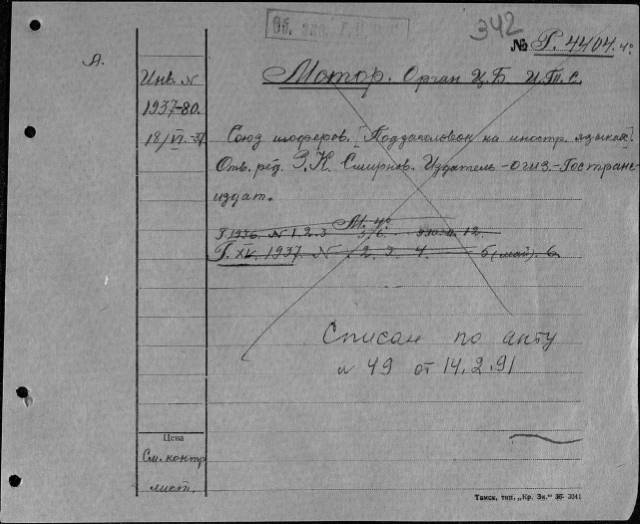 342
№ Г. 4404. 4°
Я.
Инв. №
1937-80.
18/VI.-37
Мотор. Орган Ц.Б И.Т.С.
Союз шоферов. [Подзаголовок на иностр. языках].
Отв. ред. З.К. Смирнов. Издатель-огиз.-Гостранс-
издат.
М. 4°
Г. 1936. N 1. 2. 3 12.
Г. XIV. 1937. N 2. 3. 4. 5 (май). 6.
Списан по акту
№ 49 от 14.2.91
Цена
См. контр
лист.
Томск, тип. „Кр. Зн." 36- 3041